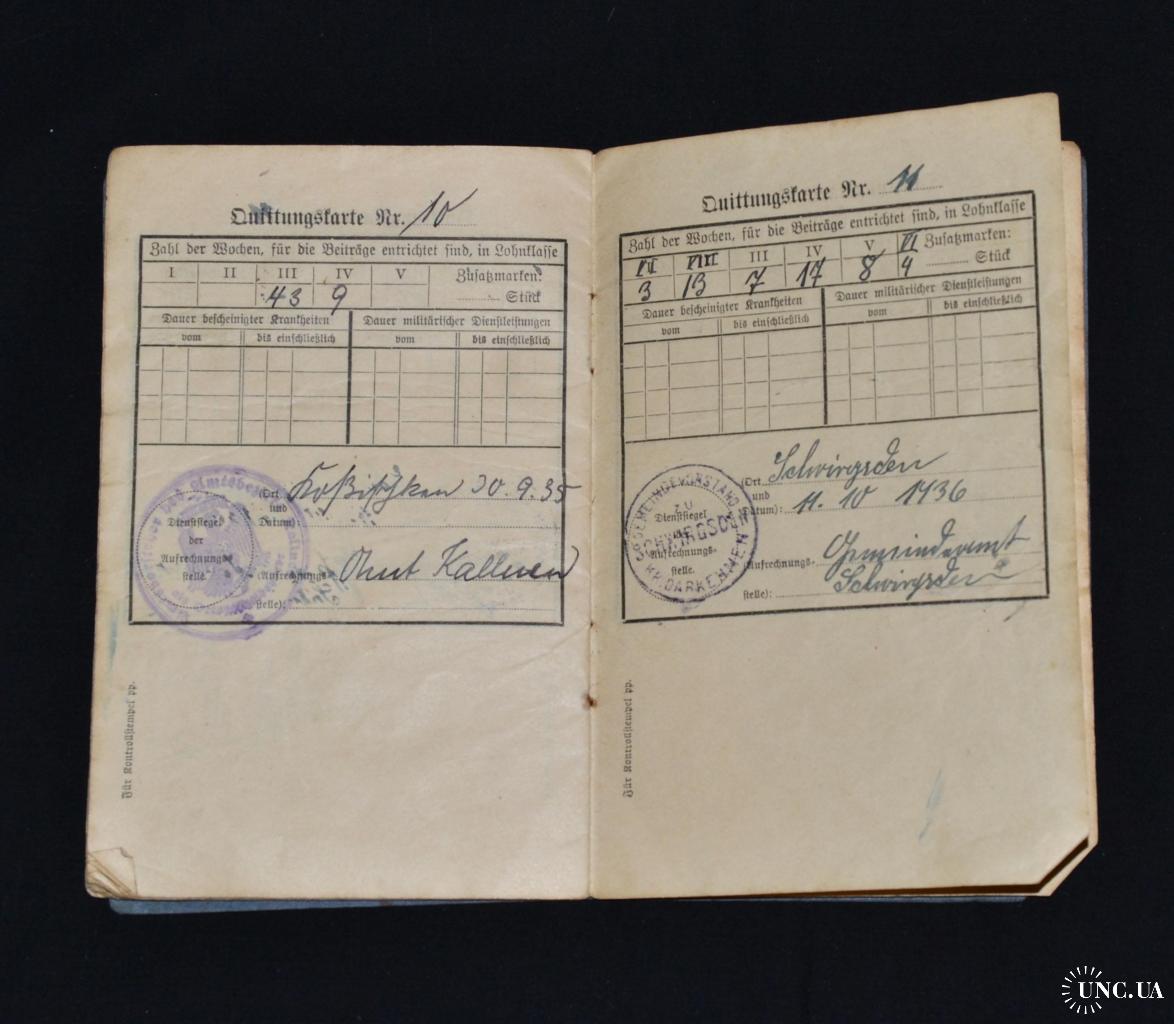 Quittungskarte Nr. 10
Zahl der Wochen, für die Beiträge entrichtet sind, in Lohnklasse
I II III IV V Zusatzmarken:
43 9 Stück
Dauer bescheinigter Krankheiten Dauer militärischer Dienstleistungen
vom bis einschließlich vom bis einschließlich
(Ort 30.9.35
und
Datum):
Dienstsiegel
der
Aufrechnungs-
stelle.
(Aufrechnungs- Amt Kallnen
stelle):
Für Kontrollstempel pp.
Quittungskarte Nr. 11
Zahl der Wochen, für die Beiträge entrichtet sind, in Lohnklasse
VII VIII III IV V VI Zusatzmarken:
3 13 7 17 8 4 Stück
Dauer bescheinigter Krankheiten Dauer militärischer Dienstleistungen
vom bis einschließlich vom bis einschließlich
(Ort Schwirgsden
und
Datum): 11.10 1936
GEMEINDEVORSTAND
ZU
SCHWIRGSDEN
KR. DARKEHMEN
Dienstsiegel
Aufrechnungs-
stelle.
(Aufrechnungs- Gemeindeamt
stelle): Schwirgsden
Für Kontrollstempel pp.
UNC.UA